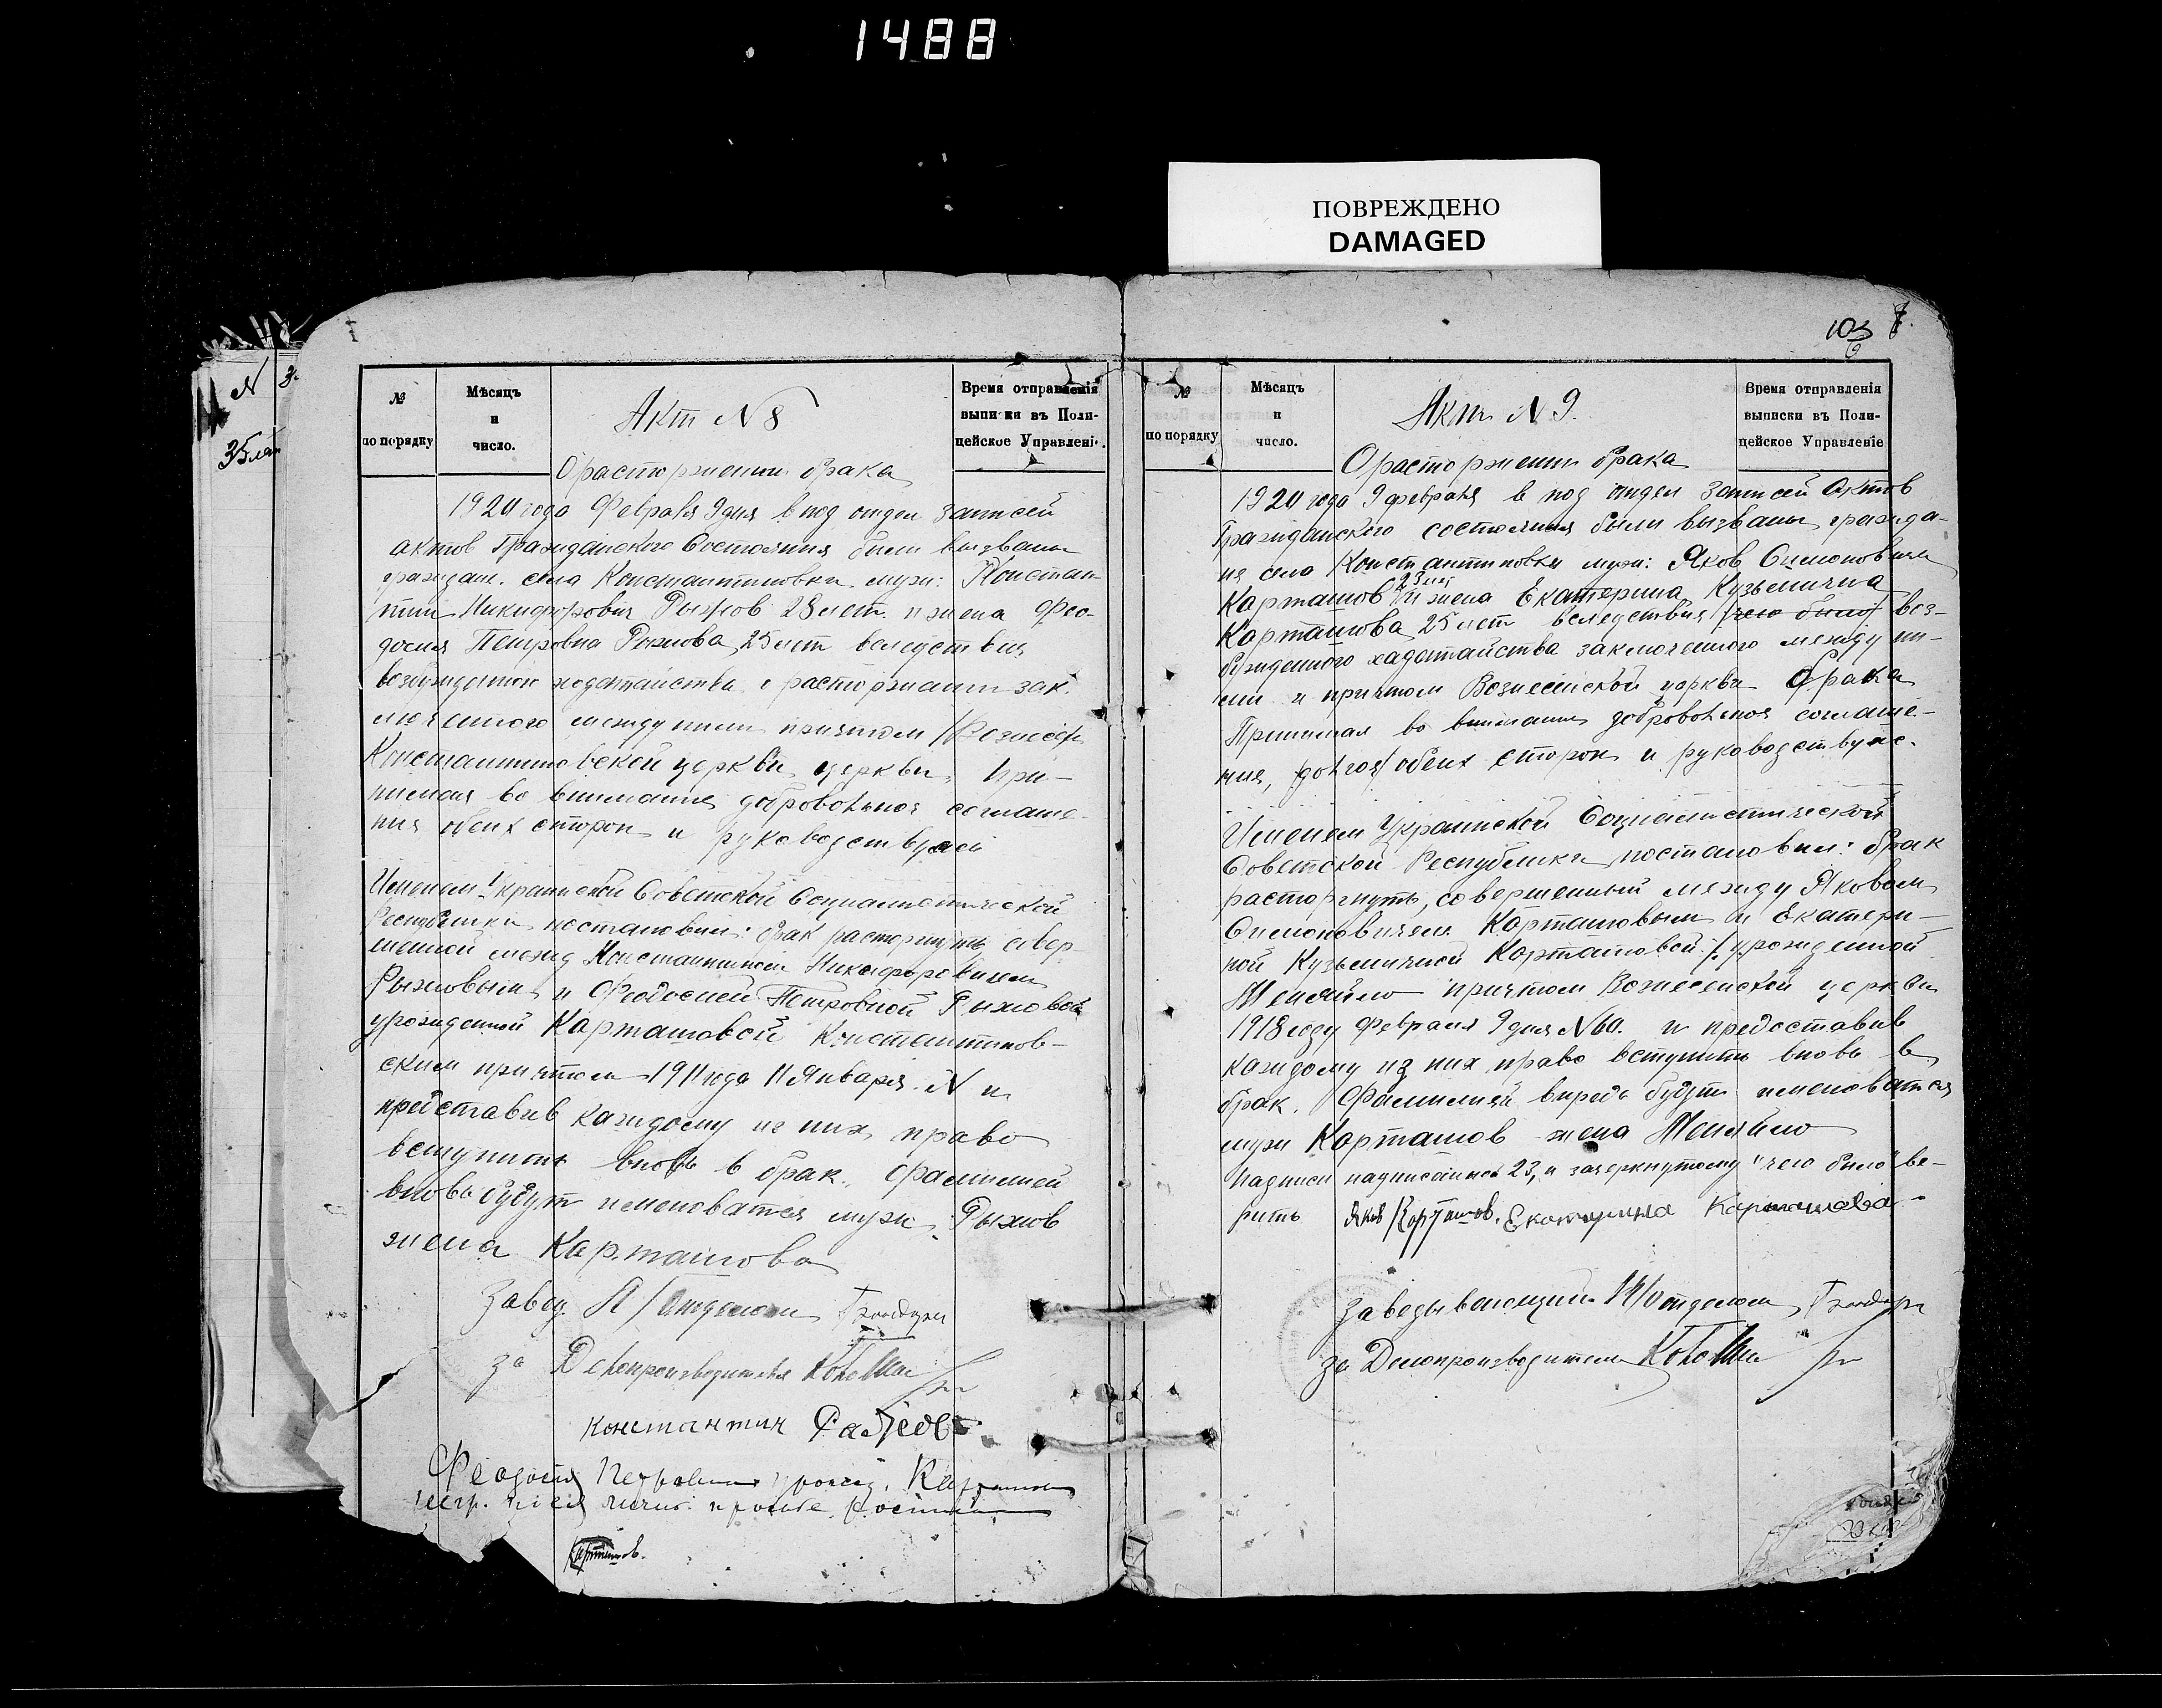 1488
ПОВРЕЖДЕНО
DAMAGED
№
по порядку
Мѣсяцъ
и
число.
Акт N 8
Время отправленія
выписки въ Поли-
цейское Управленіе.
О расторжении брака
1920 года Февраля 9 дня в под отдел записей
актов Гражданского Состояния были вызваны
граждан. села Константиновки муж: Констан-
тин Никифорович Рыжов 28 лет. и жена Фео-
досия Петровна Рыжова, 25 лет вследствия
возбужденног ходатайства о расторжении зак.
люченного между ними причтом
Константиновской церкви, церкви, при-
нимая во внимание добровольное соглаше-
ния обеих сторон и руководствуясь
Именем Украинской Советской Социалистической
Республики постановил: брак расторгнуть совер-
шенной между Константином Никифоровичем
Рыжовым и Феодосией Петровной Рыжовой
урожденной Карташовой Константинов-
ским причтом 1911 года 11 Января N и
представив каждому из них право
вступить вновь в брак. Фамилией
вновь будут именоватся муж Рыжов
жена Карташова
Завед. П/Отделом
за Делопроизводителя
Константин
Феодосия Петровна урожд.
Карташов.
N
35 лет
103
№
по порядку
Мѣсяцъ
и
число.
Акт N 9.
Время отправленія
выписки въ Поли-
цейское Управленіе
О расторжении брака
1920 года 9 февраля в под отдел записей Актов
Гражданского состояния были вызваны гражда-
не села Константиновки муж: Яков Симонович
23 лет
Карташов и жена Екатерина Кузьминична
Карташова 25 лет вследствия чего было воз-
бужденного хадатайства заключенного между ни-
ми и причтом Вознесенской церкви брака
Принимая во внимание добровольное соглаше-
ния, обеих сторон и руководствуяс.
Именем Украинской Социалистической
Советской Республики постановил: брак
расторгнуть, совершенный между Яковом
Симоновичем Карташовым и Екатери-
ной Кузьминичной Карташовой /урожденной
причтом Вознесенской церкви
1918 году Февраля 9 дня N 60. и предоставив
каждому из них право вступить вновь в
брак. Фамилией впредь будут именоватся
муж Карташов жена
Надписи надписанное 23, и зачеркнутому "чего было" ве-
рить Яков Карташов. Екатерина Карташова
Заведывающий П/Отделом
за Делопроизводителя